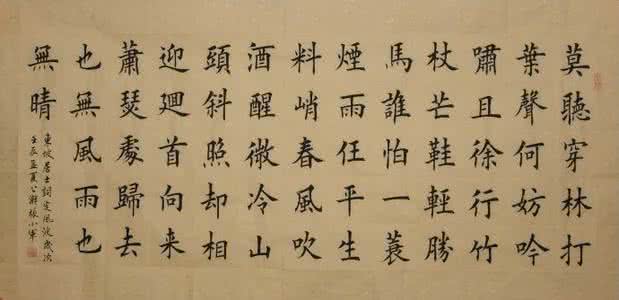 莫聽穿林打
葉聲何妨吟
嘯且徐行竹
杖芒鞋輕勝
馬誰怕一蓑
煙雨任平生
料峭春風吹
酒醒微冷山
頭斜照却相
迎廻首向来
蕭瑟處歸去
也無風雨也
無晴
東坡居士詞定風波歲次
壬辰孟夏張小軍